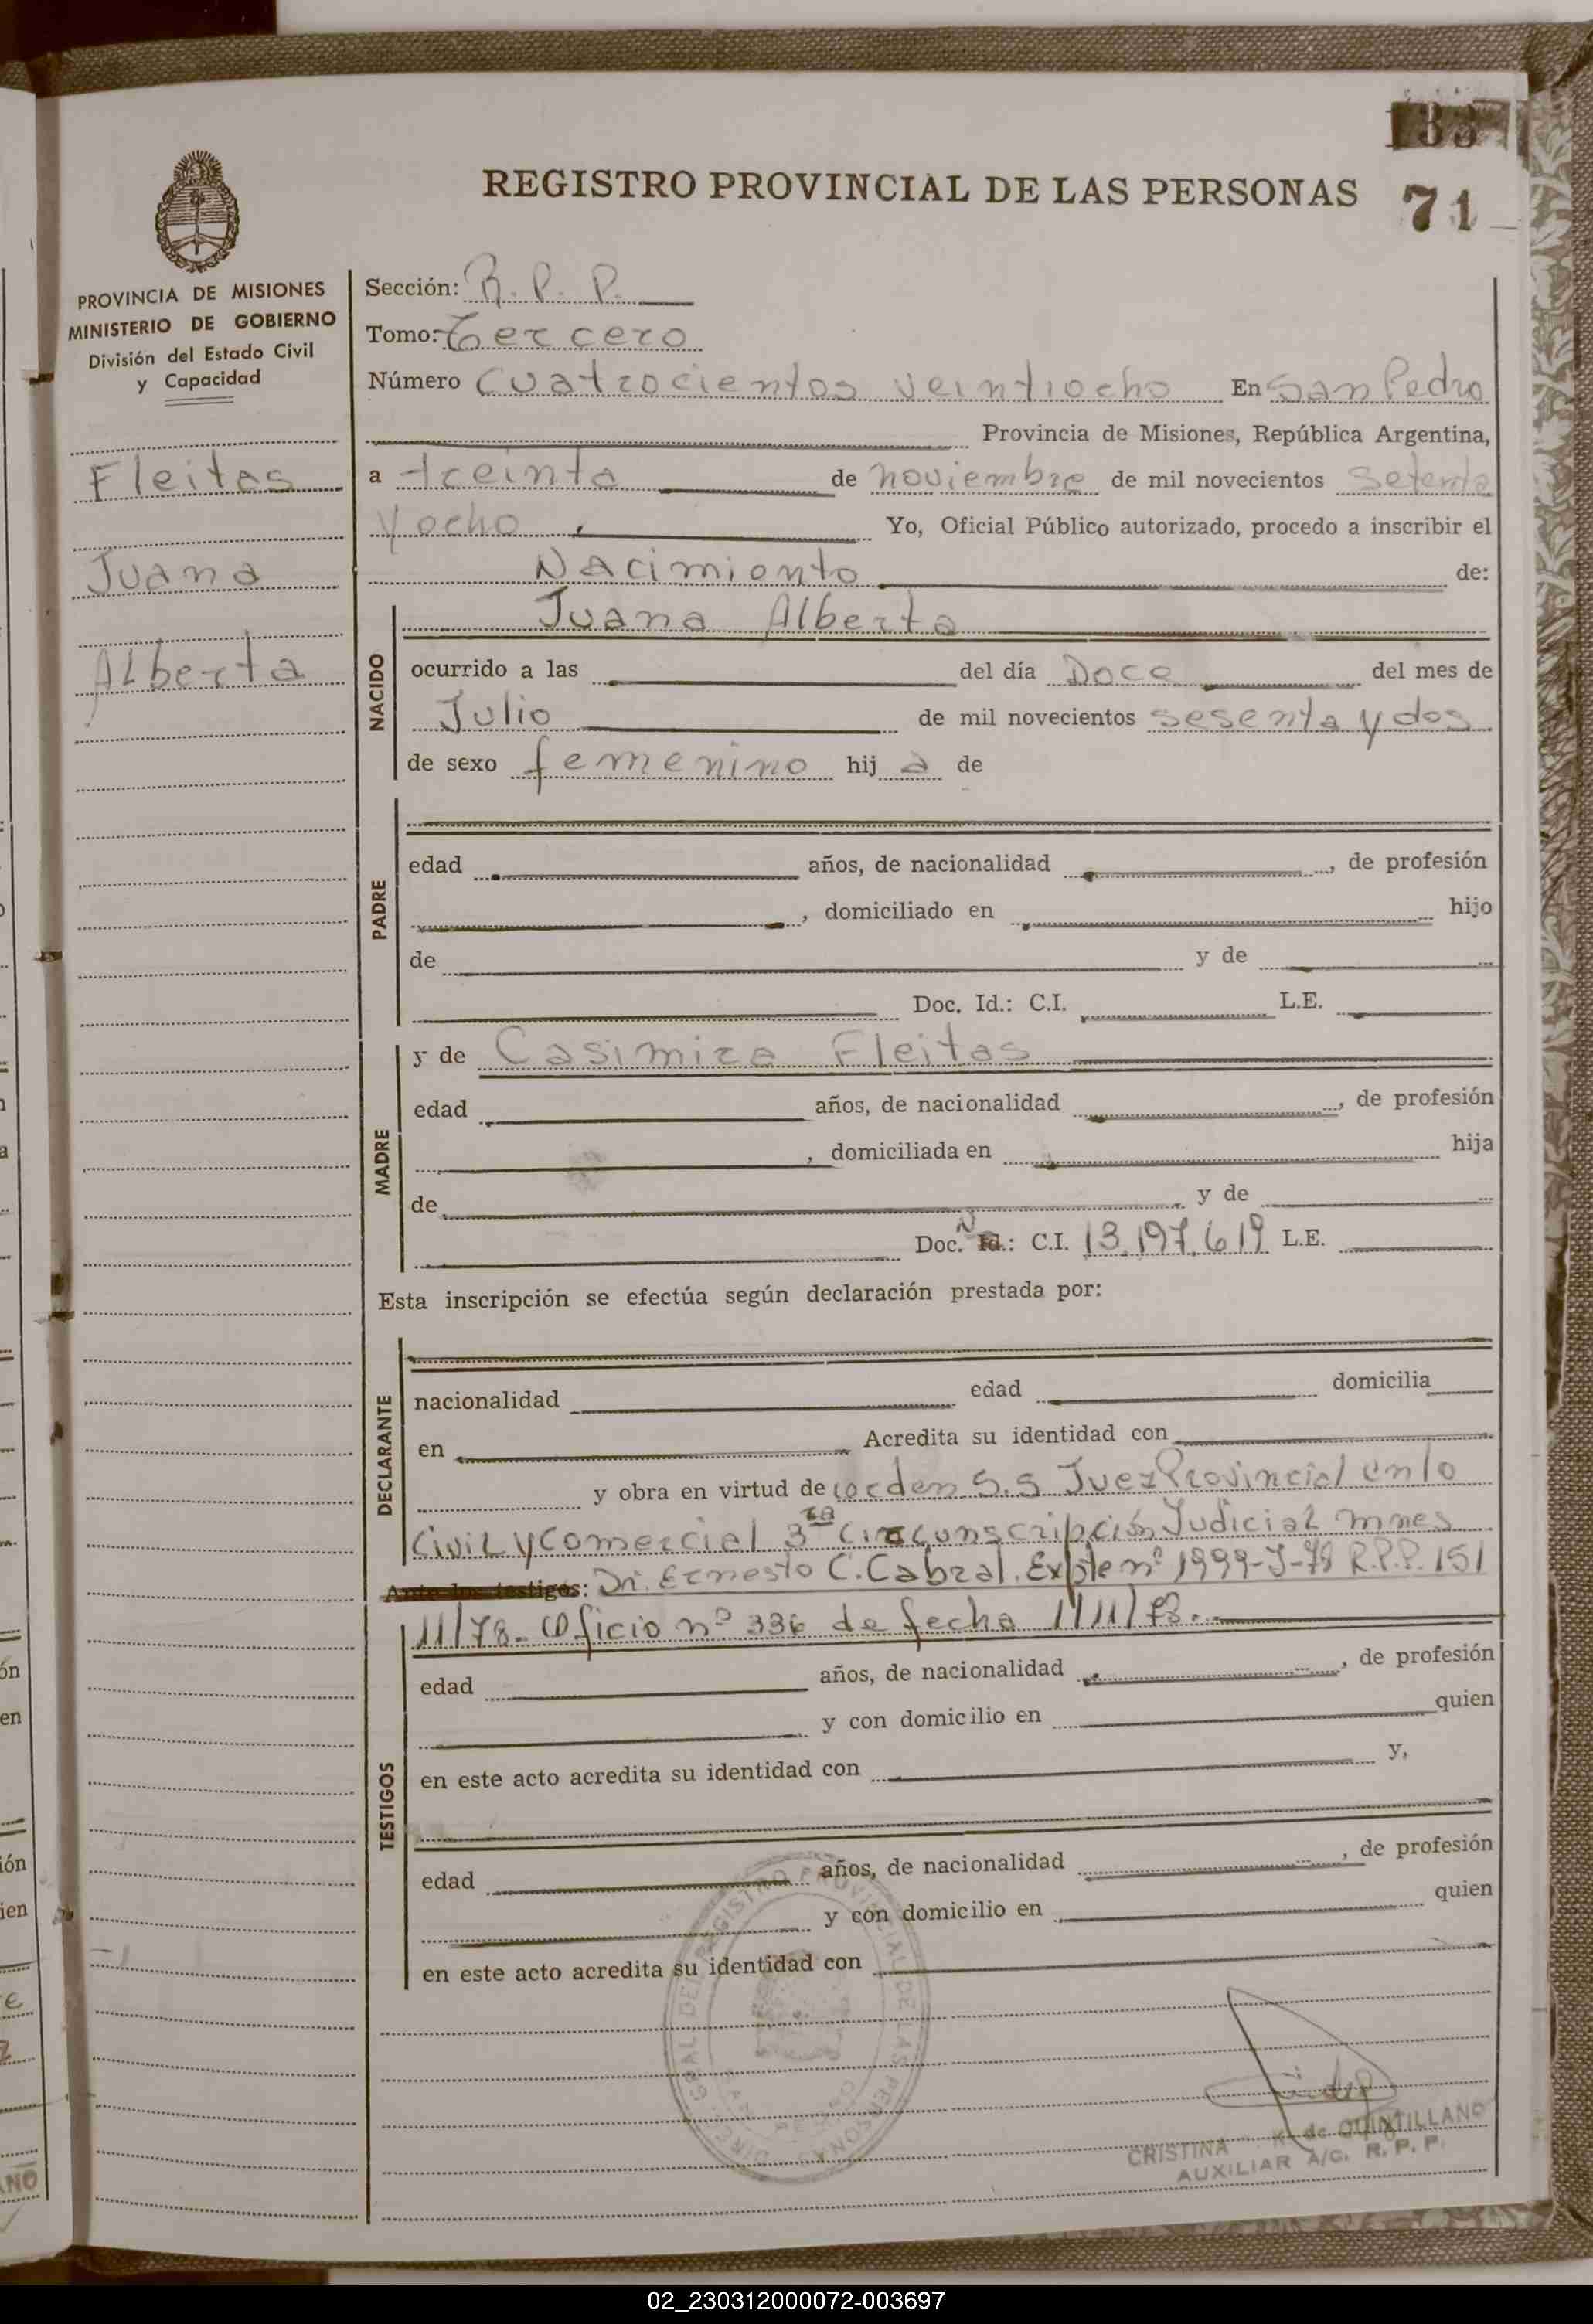 71
REGISTRO PROVINCIAL DE LAS PERSONAS
PROVINCIA DE MISIONES
MINISTERIO DE GOBIERNO
División del Estado Civil
y Capacidad
Fleitas
Juana
Alberta
Sección: R. P. P.
Tomo: Tercero
Número Cuatrocientos veintiocho En San Pedro
Provincia de Misiones, República Argentina,
a treinta de noviembre de mil novecientos setenta
y ocho Yo, Oficial Público autorizado, procedo a inscribir el
Nacimiento de:
NACIDO
Juana Alberta
ocurrido a las del día Doce del mes de
Julio de mil novecientos sesenta y dos
de sexo femenino hij a de
PADRE
edad años, de nacionalidad , de profesión
, domiciliado en hijo
de y de
Doc. Id.: C.I. L.E.
MADRE
y de Casimira Fleitas
edad años, de nacionalidad , de profesión
, domiciliada en hija
de y de
Doc. Id.: C.I. 13.197.619 L.E.
Esta inscripción se efectúa según declaración prestada por:
DECLARANTE
nacionalidad edad domicilia
en Acredita su identidad con
y obra en virtud de orden S.S Juez Provincial en lo
Civil y Comercial 3ra Circunscripción Judicial mnes
Ante los testigos: Dr. Ernesto C. Cabral. Expte nº 1999-J-78 R.P.P. 151
11/78. Oficio nº 336 de fecha 1/11/78.
TESTIGOS
edad años, de nacionalidad , de profesión
y con domicilio en quien
en este acto acredita su identidad con y,
edad años, de nacionalidad , de profesión
y con domicilio en quien
en este acto acredita su identidad con
REGISTRO PROVINCIAL DE LAS PERSONAS
CRISTINA K. de QUINTILLANO
AUXILIAR A/C. R. P. P.
02_230312000072-003697